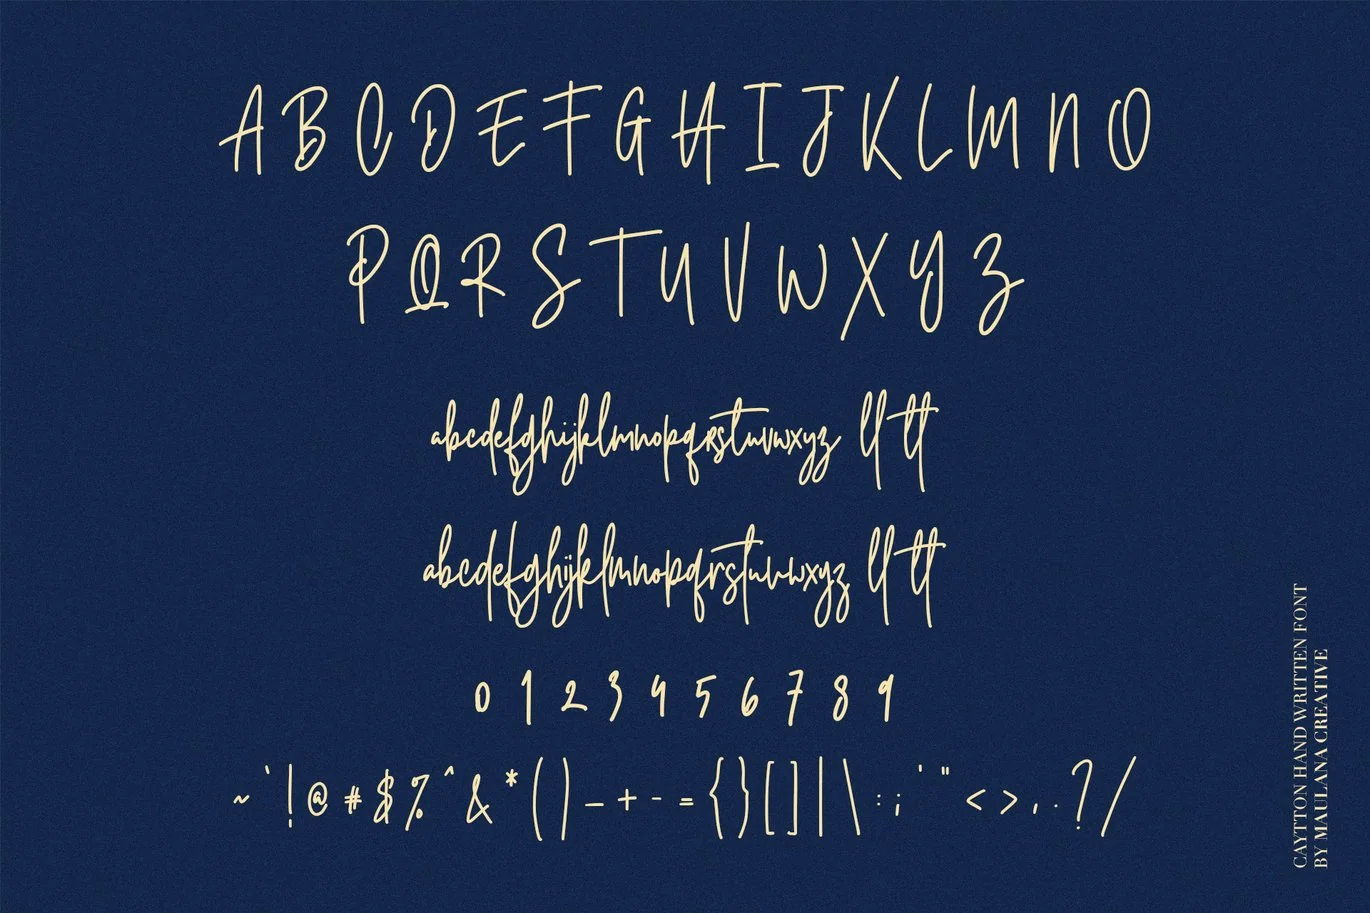 A B C D E F G H I J K L M N O
P Q R S T U V W X Y Z
abcdefghijklmnopqrstuvwxyz ll tt
abcdefghijklmnopqrstuvwxyz ll tt
0 1 2 3 4 5 6 7 8 9
~ ` ! @ # $ % ^ & * ( ) _ + - = { } [ ] | \ : ; ' " < > , . ? /
CAYTTON HAND WRITTEN FONT
BY MAULANA CREATIVE